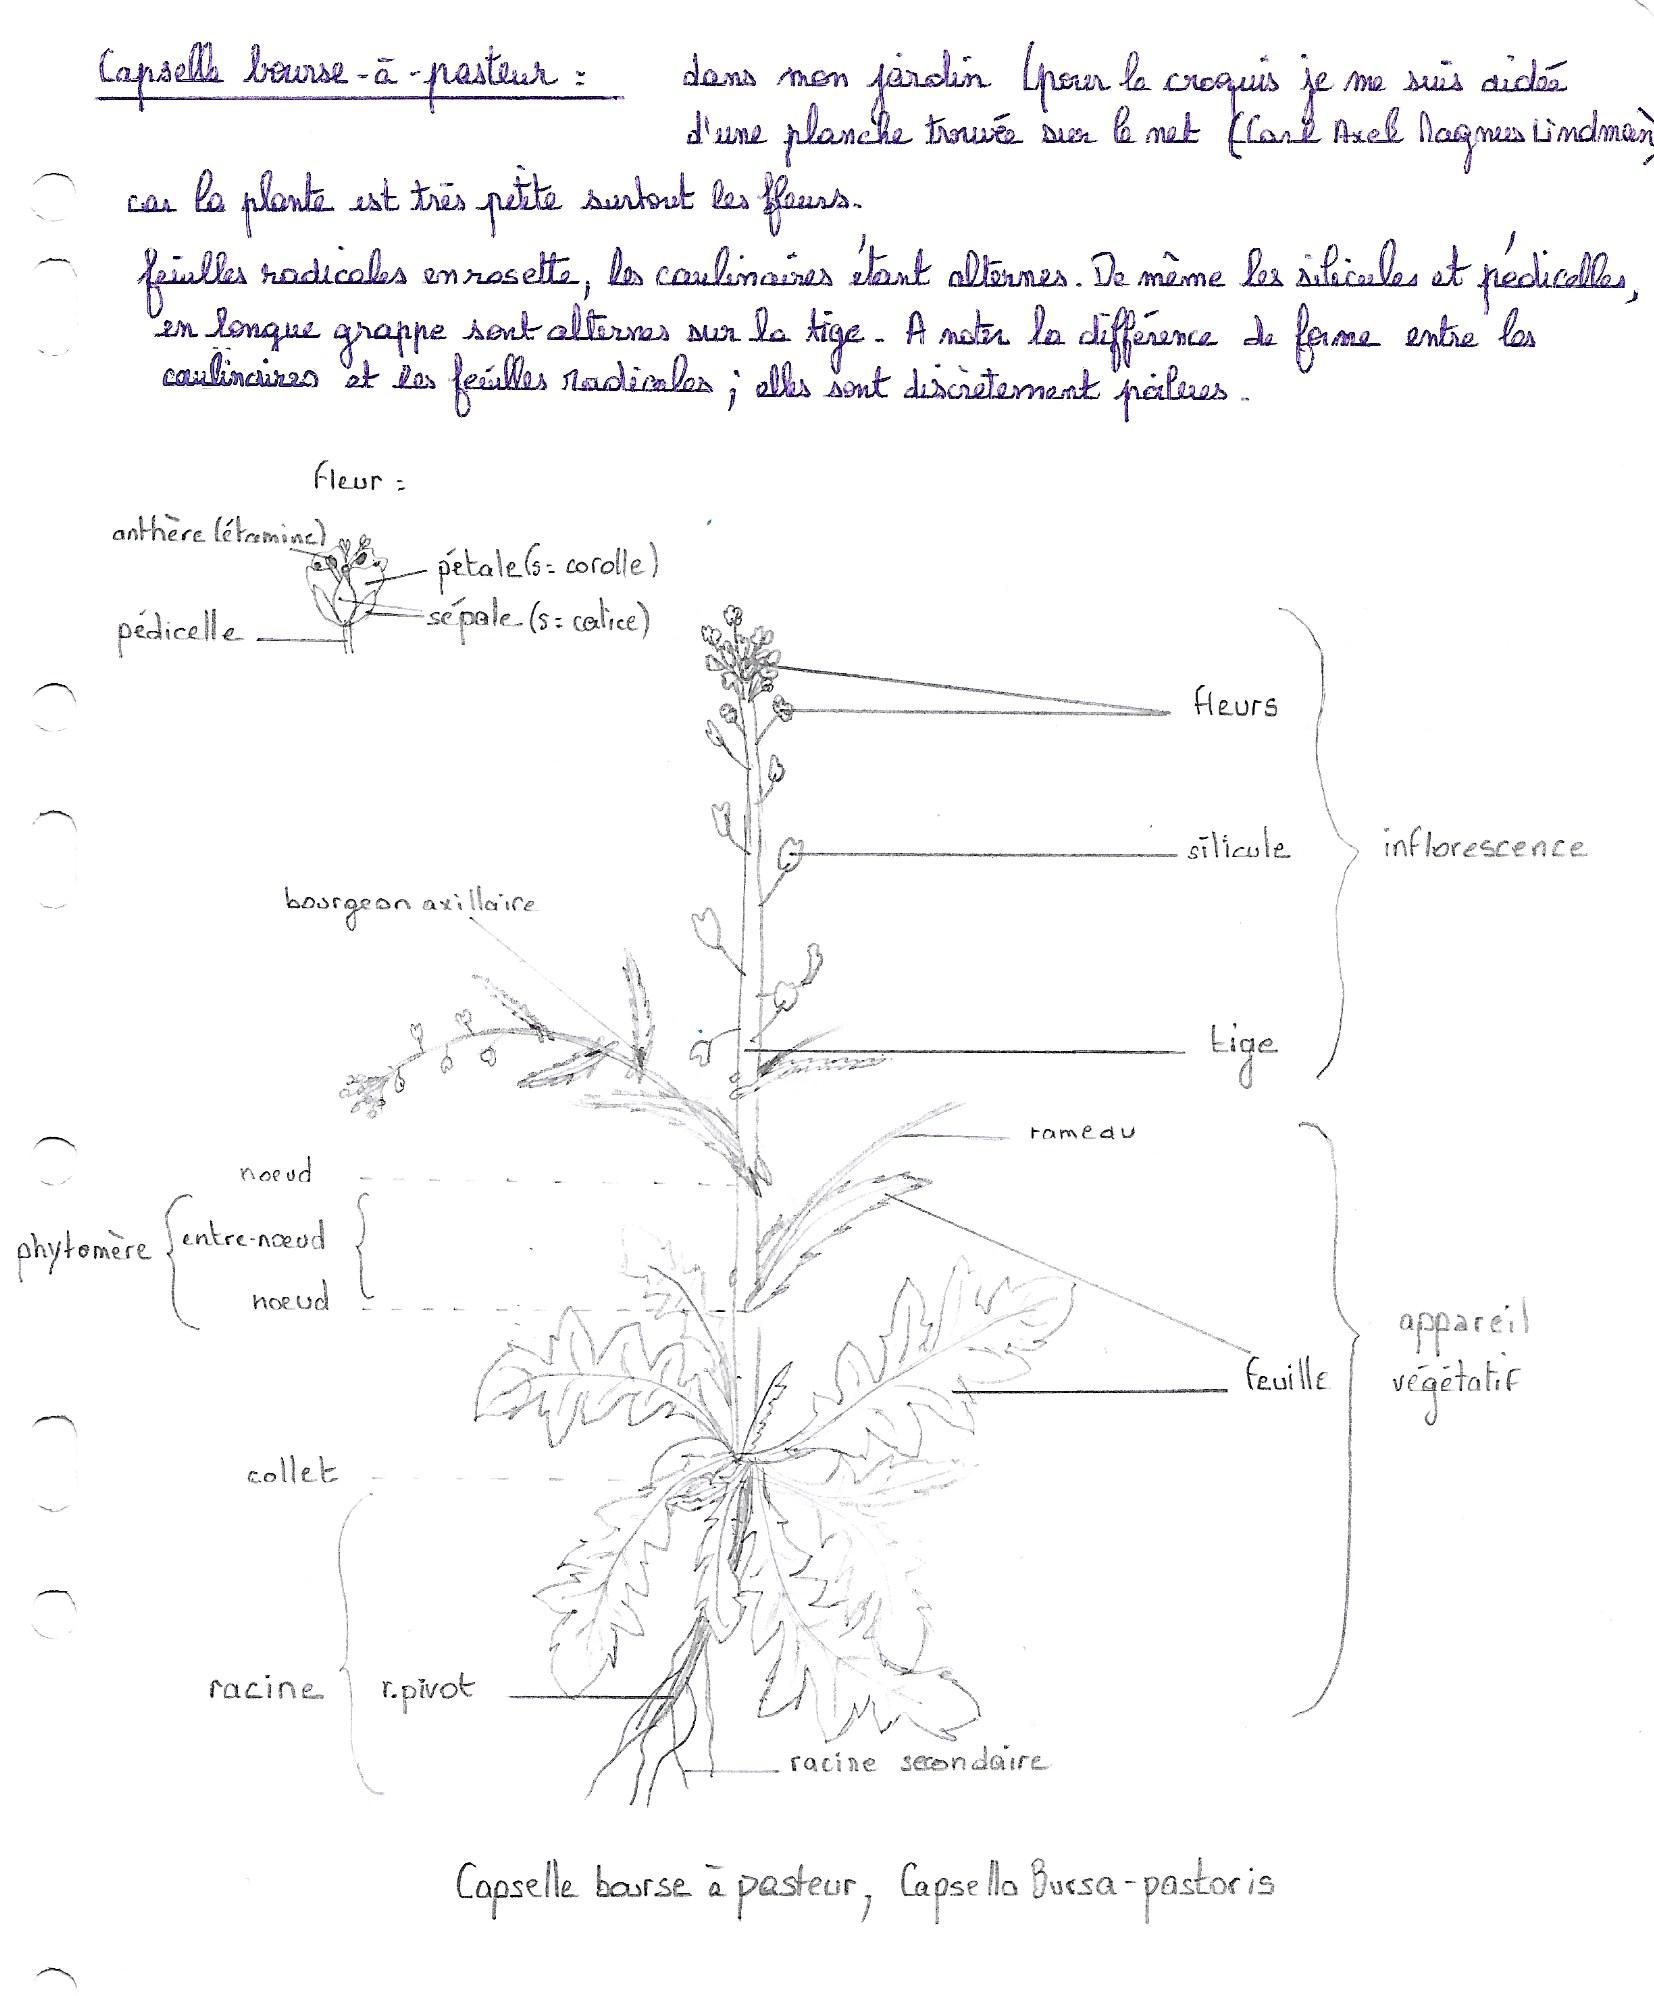 Capselle bourse-à-pasteur : dans mon jardin (pour le croquis je me suis aidée
d'une planche trouvée sur le net (Carl Axel Magnus Lindman)
car la plante est très petite surtout les fleurs.
feuilles radicales en rosette, les caulinaires étant alternes. De même les silicules et pédicelles,
en longue grappe sont alternes sur la tige. A noter la différence de forme entre les
caulinaires et les feuilles radicales ; elles sont discrètement poilues.
fleur :
anthère (étamine)
pétale (s = corolle)
sépale (s = calice)
pédicelle
fleurs
silicule
inflorescence
bourgeon axillaire
tige
rameau
noeud
phytomère
entre-noeud
noeud
appareil
végétatif
feuille
collet
racine
r.pivot
racine secondaire
Capselle bourse à pasteur, Capsella Bursa-pastoris